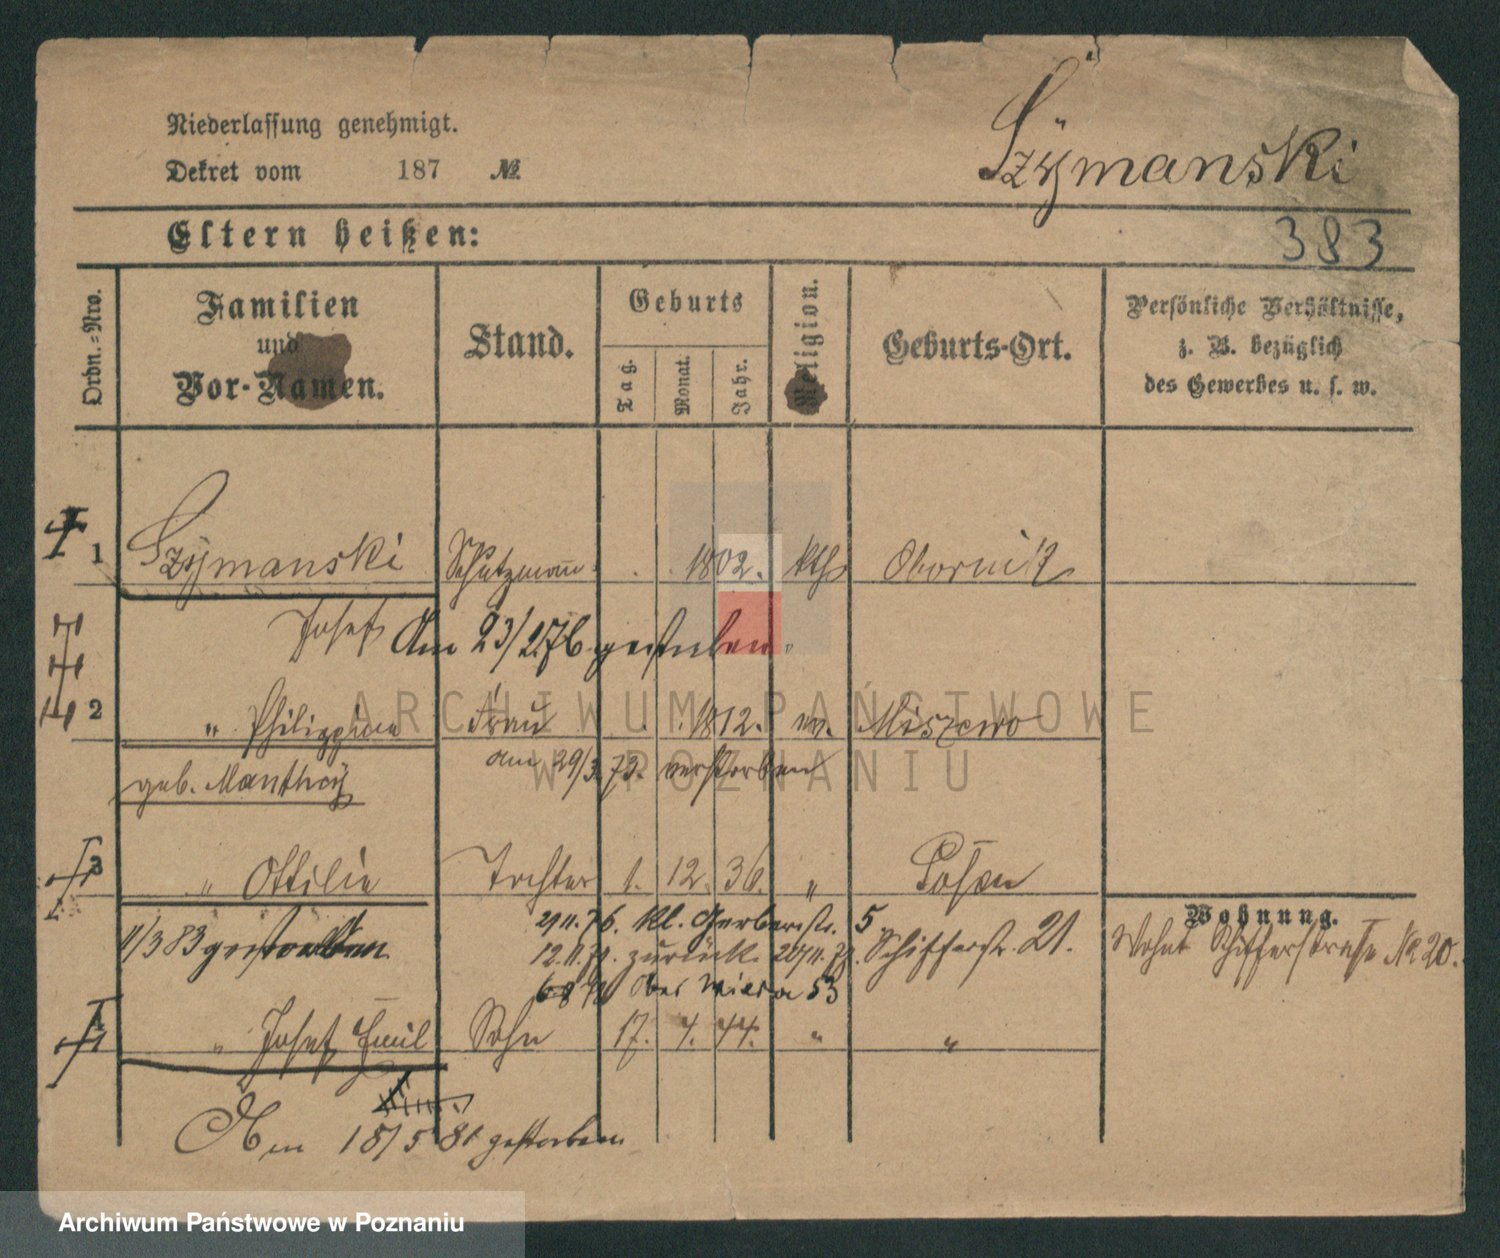 Niederlassung genehmigt.
Dekret vom 187 №
Szÿmanski
Eltern heißen:
383
Ordn.-Nro.
Familien und Vor-Namen.
Stand.
Geburts
Tag. Monat. Jahr.
Religion.
Geburts-Ort.
Persönliche Verhältnisse, z. B. bezüglich des Gewerbes u. s. w.
1 Szÿmanski Schutzmann 1802. kth Obornik
Josef Am 23/2.76 gestorben
2 " Philippine Frau 1812. ev. Miszewo
geb. Manthey am 29/3.73. verstorben
3 " Ottilie Tochter 1. 12. 36. " Posen
11/3 83 gestorben
29 11. 76. kl. Gerberstr. 5
12. 11. zurück. Schifferstr. 21.
Ober Wilda 53
Wohnung.
Wohnt Schifferstraße No 20.
4 " Josef Emil Sohn 17. 4. 44. " "
Am 18/5 81 gestorben
ARCHIWUM PAŃSTWOWE
W POZNANIU
Archiwum Państwowe w Poznaniu